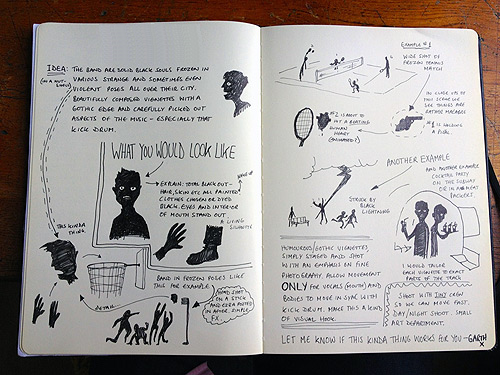 IDEA: THE BAND ARE SOLID BLACK SOULS FROZEN IN
(IN A NUT-SHELL)
VARIOUS STRANGE AND SOMETIMES EVEN
VIOLENT POSES ALL OVER THEIR CITY.
BEAUTIFULLY COMPOSED VIGNETTES WITH A
GOTHIC EDGE AND CAREFULLY PICKED OUT
ASPECTS OF THE MUSIC - ESPECIALLY THAT
KICK DRUM.
WHAT YOU WOULD LOOK LIKE
EXPLAIN: TOTAL BLACK OUT -
HAIR, SKIN ETC ALL PAINTED
CLOTHES CHOSEN OR DYED
BLACK. EYES AND INTERIOR
OF MOUTH STAND OUT
A LIVING
SILHOUETTE
THIS KINDA
THING
BAND IN FROZEN POSES LIKE
THIS FOR EXAMPLE.
DETAIL
HAND SHOT
ON A STICK
AND
POSTED
IN AFTER. SIMPLE
FX.
EXAMPLE #1
WIDE SHOT OF
FROZEN TENNIS
MATCH
IN CLOSE UPS OF
THIS SCENE WE
SEE THINGS ARE
RATHER MACABRE
#2 IS ABOUT TO
HIT A BEATING
HUMAN HEART
#1 IS HOLDING
A GUN.
ANOTHER EXAMPLE
STRUCK BY
BLACK
LIGHTNING
AND ANOTHER EXAMPLE
COCKTAIL PARTY
ON THE SUBWAY
OR IN A MEAT
PACKERS.
HUMOUROUS/GOTHIC VIGNETTES,
SIMPLY STAGED AND SHOT
WITH AN EMPHASIS ON FINE
PHOTOGRAPHY. ALLOW MOVEMENT
ONLY FOR VOCALS (MOUTH) AND
BODIES TO MOVE IN SYNC WITH
KICK DRUM. MAKE THIS A KIND
OF VISUAL HOOK.
I WOULD TAILOR
EACH VIGNETTE TO EXACT
PARTS OF THE TRACK
SHOOT WITH TINY CREW
SO WE CAN MOVE FAST.
DAY/NIGHT SHOOT. SMALL
ART DEPARTMENT.
LET ME KNOW IF THIS KINDA THING WORKS FOR YOU - GARTH
X